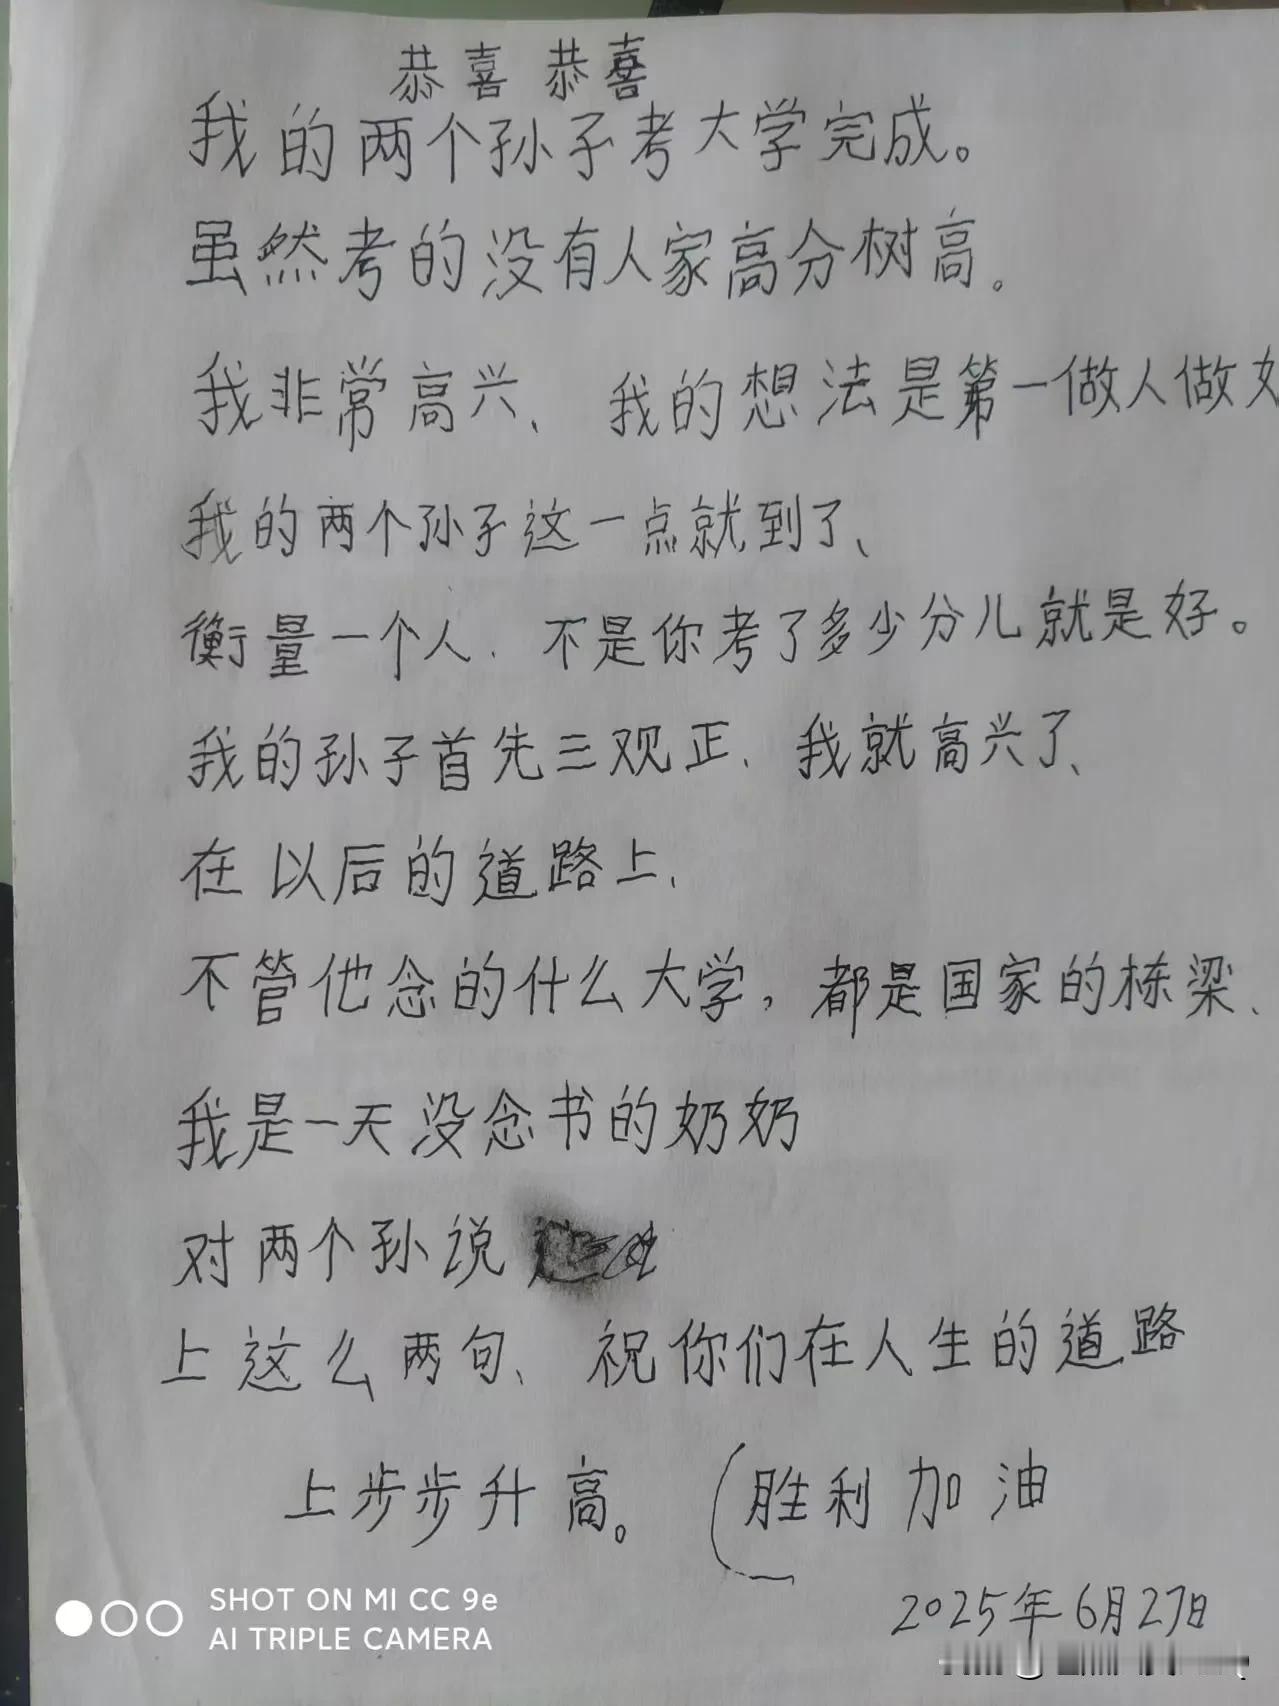 恭喜恭喜
我的两个孙子考大学完成。
虽然考的没有人家高分树高。
我非常高兴、我的想法是第一做人做
我的两个孙子这一点就到了、
衡量一个人、不是你考了多少分儿就是好。
我的孙子首先三观正、我就高兴了、
在以后的道路上、
不管他念的什么大学,都是国家的栋梁、
我是一天没念书的奶奶
对两个孙说
上这么两句、祝你们在人生的道路
上步步升高。(胜利加油
2025年6月27日
SHOT ON MI CC 9e
AI TRIPLE CAMERA